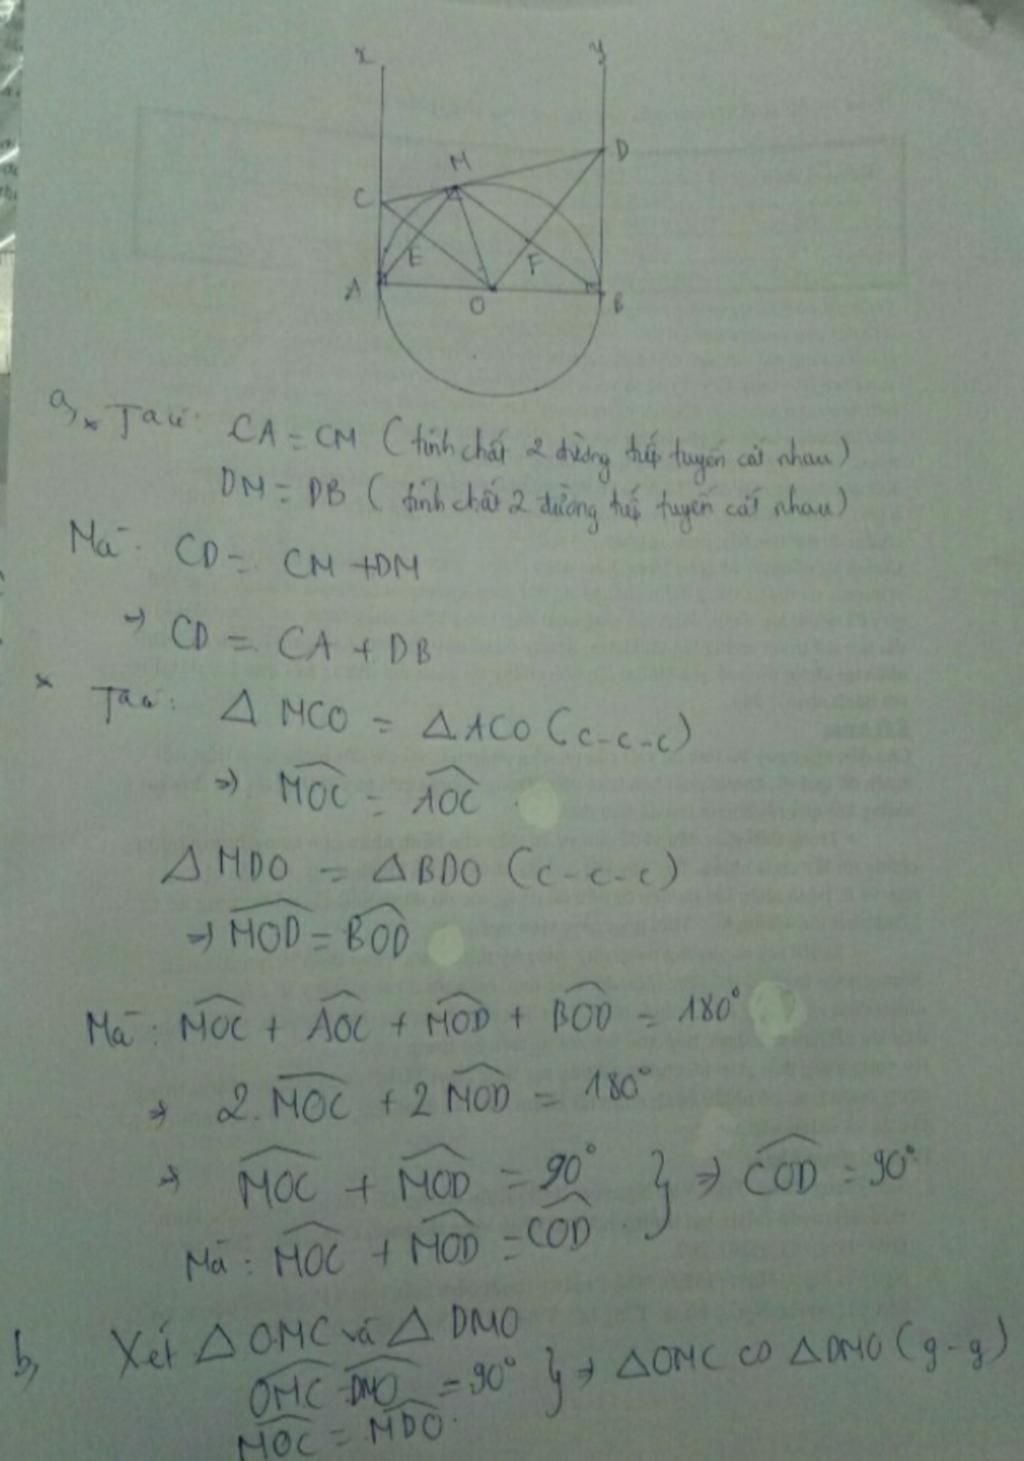 x y
D
M
C
E F
A O B
a, * Ta có: CA = CM (tính chất 2 đường tiếp tuyến cắt nhau)
DM = DB (tính chất 2 đường tiếp tuyến cắt nhau)
Mà: CD = CM + DM
⇒ CD = CA + DB
* Ta có: Δ MCO = Δ ACO (c-c-c)
⇒ \widehat{MOC} = \widehat{AOC}
Δ MDO = Δ BDO (c-c-c)
⇒ \widehat{MOD} = \widehat{BOD}
Mà: \widehat{MOC} + \widehat{AOC} + \widehat{MOD} + \widehat{BOD} = 180°
⇒ 2.\widehat{MOC} + 2\widehat{MOD} = 180°
⇒ \widehat{MOC} + \widehat{MOD} = 90° } ⇒ \widehat{COD} = 90°
Mà: \widehat{MOC} + \widehat{MOD} = \widehat{COD}
b, Xét Δ OMC và Δ DMO
\widehat{OMC} \widehat{DMO} = 90° } ⇒ Δ OMC ∽ Δ DMO (g-g)
\widehat{MOC} = \widehat{MDO}